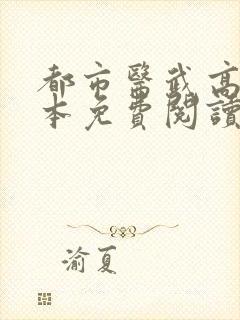 都市醫武高
本免費閱讀
渝夏